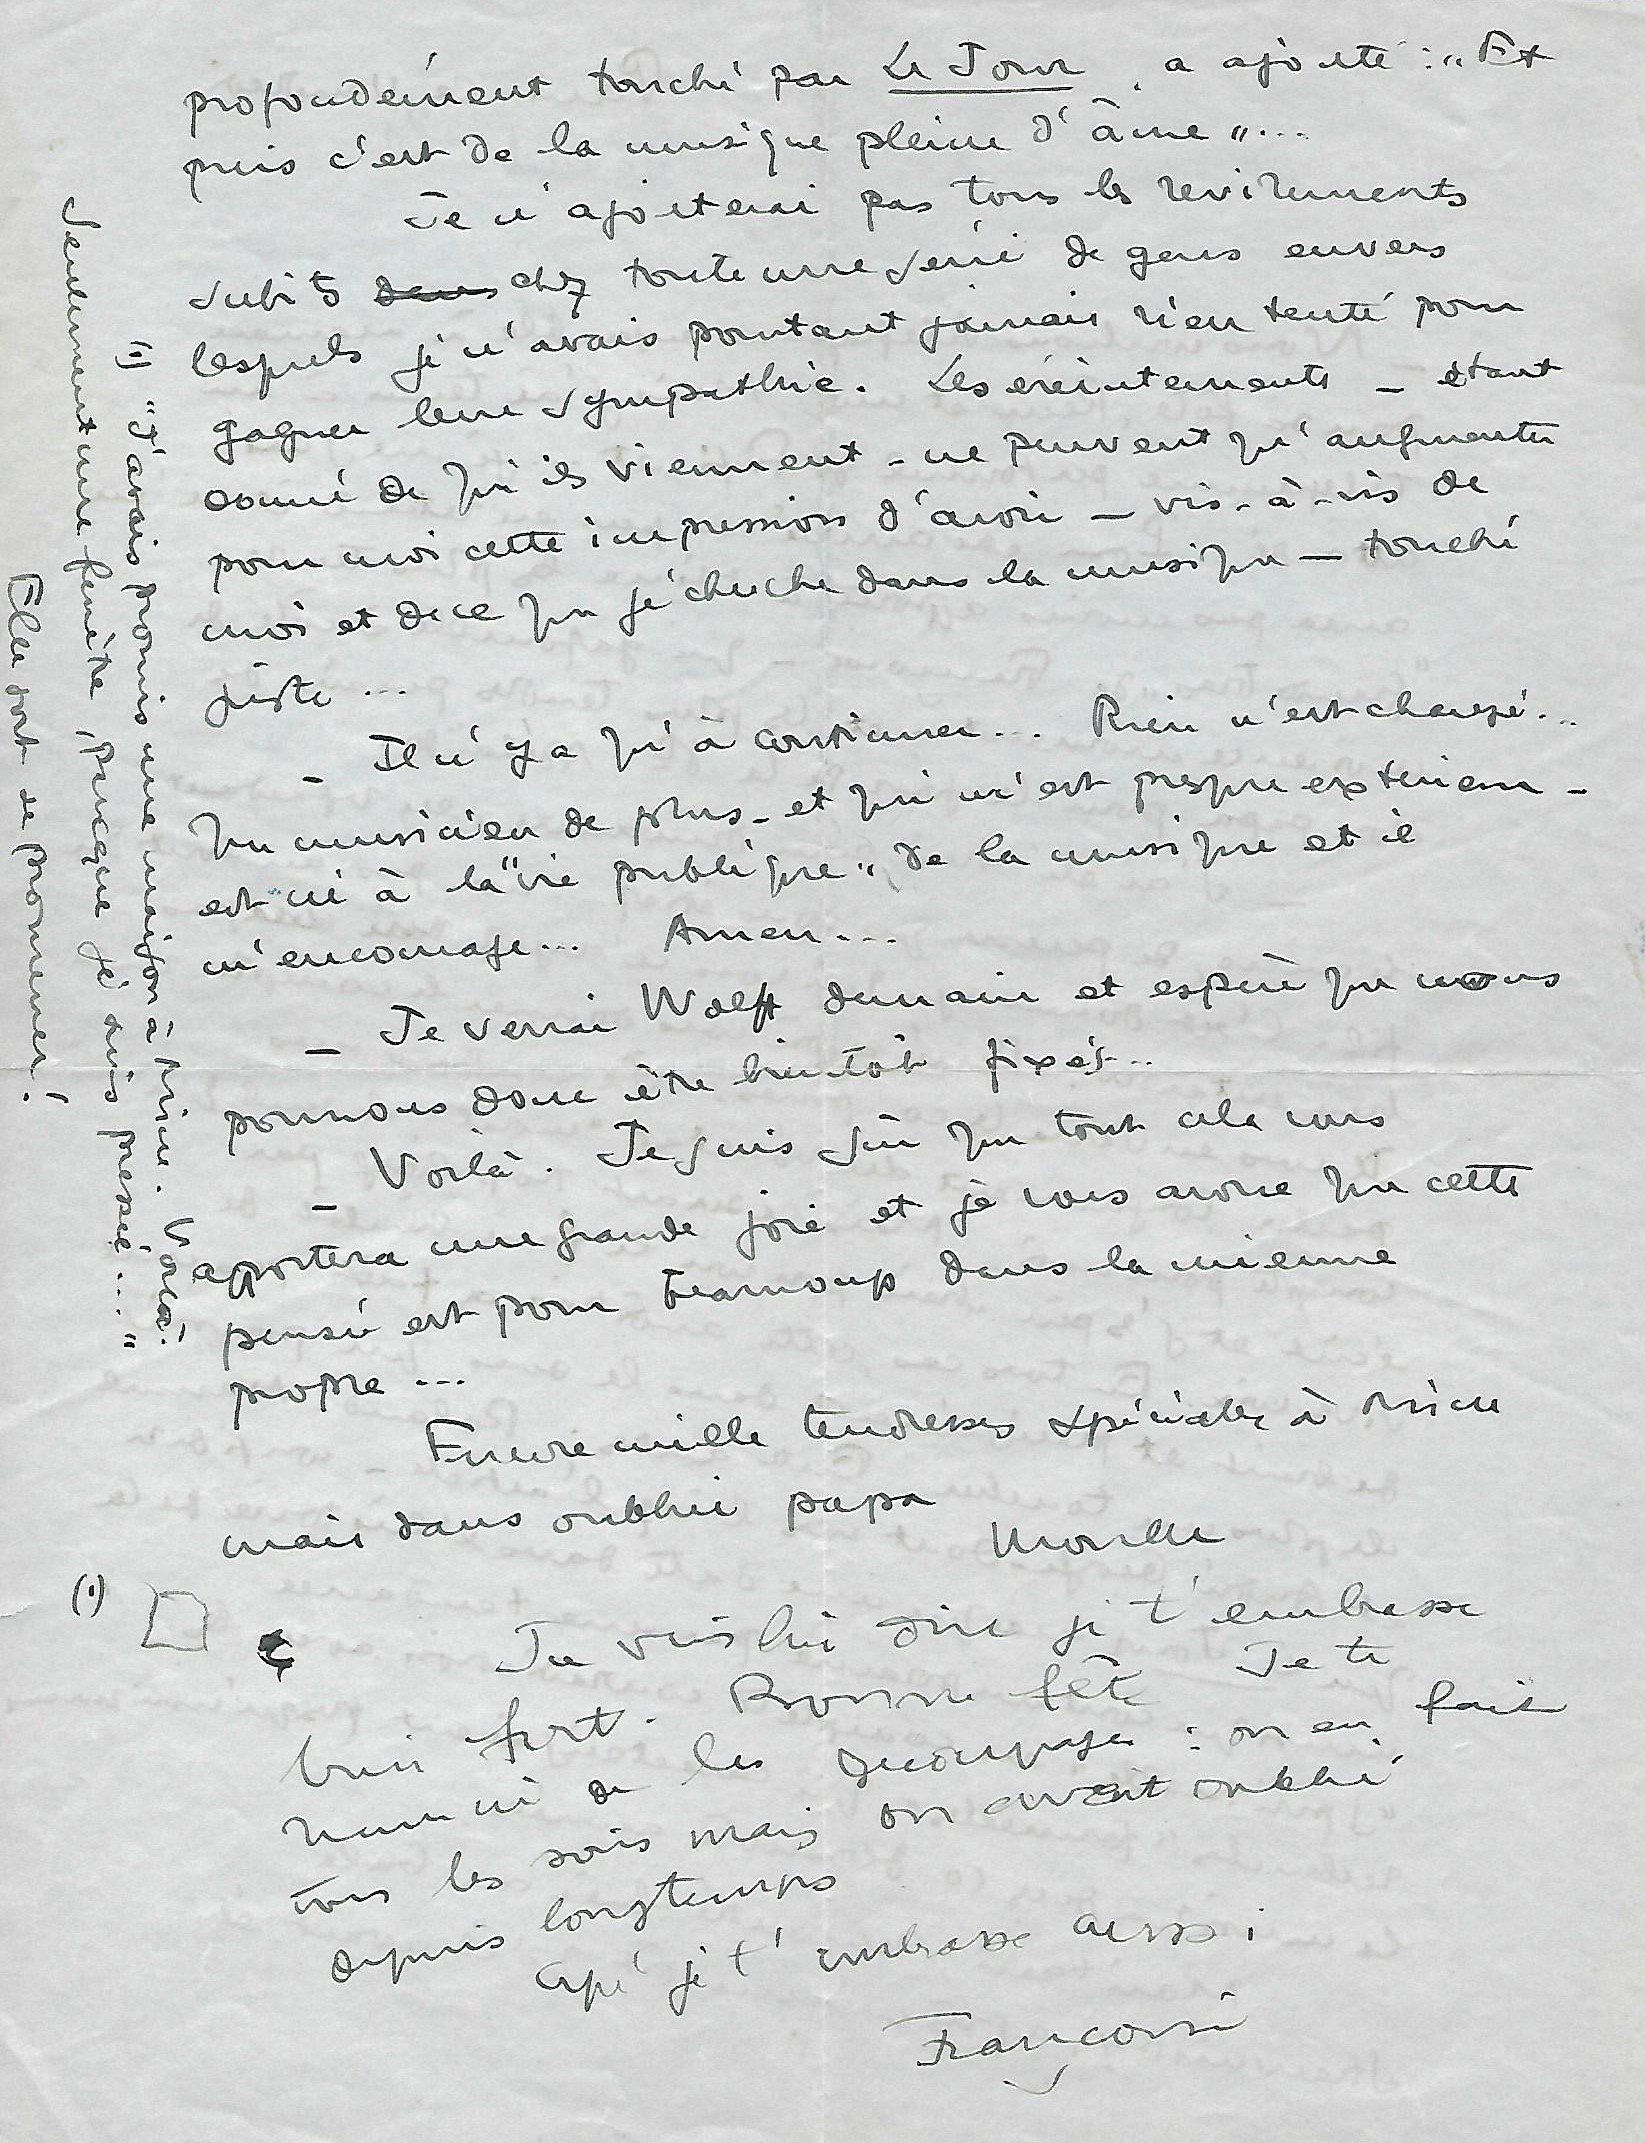 profondément touché par Le Jour, a ajouté : "Et
puis c'est de la musique pleine d'âme"...
Je n'ajouterai pas tous les revirements
subits dans chez toute une série de gens envers
lesquels je n'avais pourtant jamais rien tenté pour
gagner leur sympathie. Les éreintements - étant
donné de qui ils viennent - ne peuvent qu'augmenter
pour moi cette impression d'avoir - vis-à-vis de
moi et de ce que je cherche dans la musique - touché
juste ...
- Il n'y a qu'à continuer... Rien n'est changé...
Un musicien de plus - et qui m'est presque extérieur -
est né à la "vie publique" de la musique et il
m'encourage... Amen...
- Je verrai Wolff demain et espère que nous
pourrons donc être bientôt fixés...
- Voilà. Je suis sûr que tout cela vous
apportera une grande joie et je vous avoue que cette
pensée est pour beaucoup dans la mienne
propre ...
Encore mille tendresses spéciales à
mais sans oublier papa
(1)
Tu vois lui dire je t'embrasse
bien fort. Bonne fête Je te
de les découpages : on en fait
tous les soirs mais on avait oublié
depuis longtemps
je t'embrasse aussi
Françoise
(1) "J'avais promis une maison à . Voilà!
Seulement une fenêtre, parceque je suis pressée...."
Elle sort se promener!